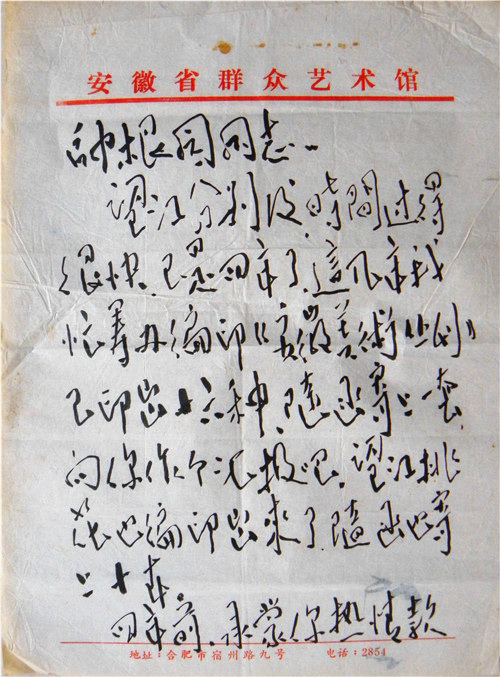 安徽省群众艺术馆
根同志：
望江分别后，時間过得
很快，已是四年了，這几年我
忙籌办編印《安徽美術丛刊》
已印出十六种，随函寄上一套，
向你作个汇报吧，望江挑
花也編印出來了，随函也寄
上十本。
四年前，承蒙你热情款
地址：合肥市宿州路九号 电话：2854